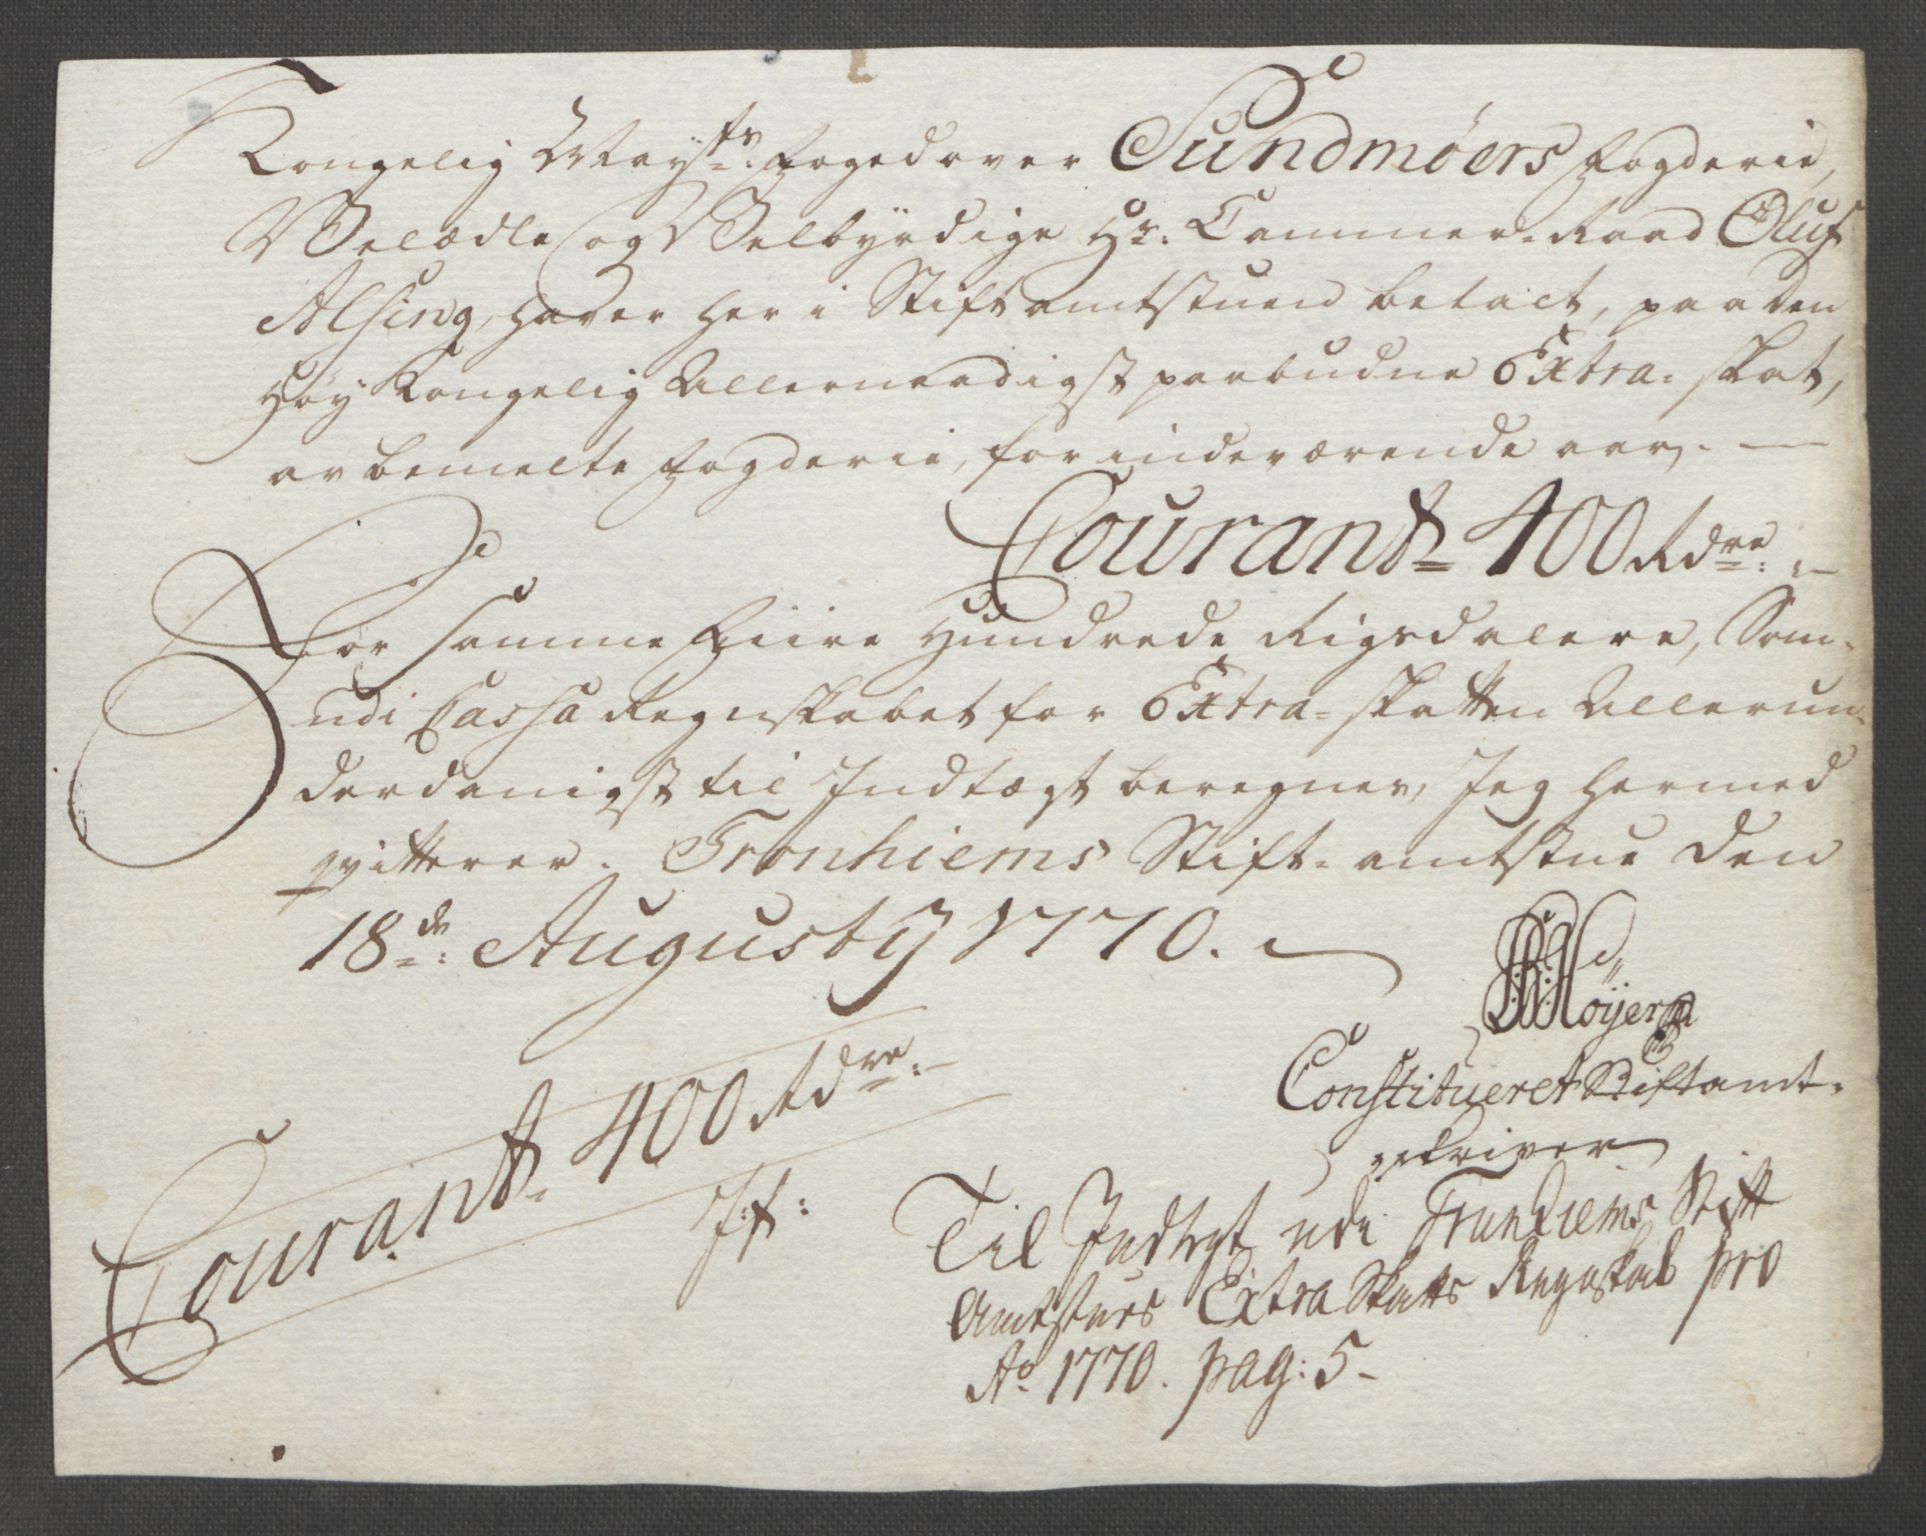 Kongelig Mayts: Foged over Sundmöers Fogderie,
Velædle og Velbyrdige Hr. Cammer-Raad Oluf
Alsing, haver her i Stiftamtstuen betalt, paa den
Höy Kongelig Allernaadigst paabudne Extra-skat,
av bemelte Fogderie, for indeværende aar,. —
Courant 400 Rdre: —
For samme Fiire Hundrede Rigsdalere, Som-
udi Cassa Regnskabet for Extra-skatten Allerun-
derdanigst til Indtægt beregnes, Jeg hermed
qvitterer. Tronhiems Stift-amtstue den
18de: Augustÿ 1770. —
Höÿer
Constitueret Stiftamt-
skriver
Courant 400 Rdre: —
Til Indtegt udi Trunhiems Stift
Amtstues Extra Skatts Regnskab pro
Ao 1770. pag: 5-